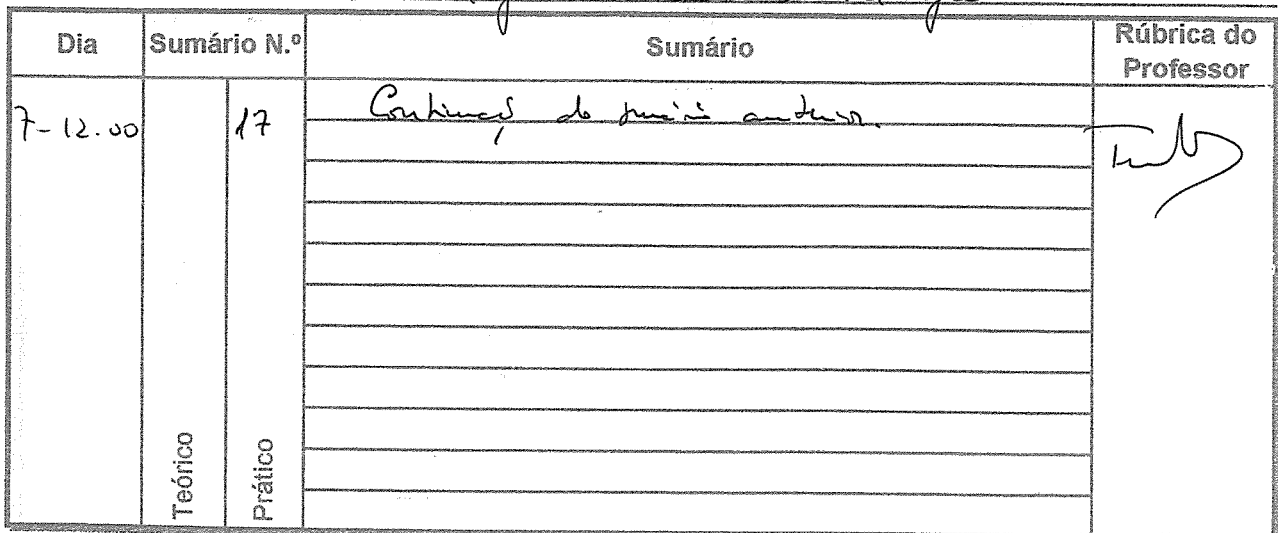 Dia Sumário N.º Sumário Rúbrica do Professor
7-12.00 17 Continuação do sumário anterior.
Teórico Prático